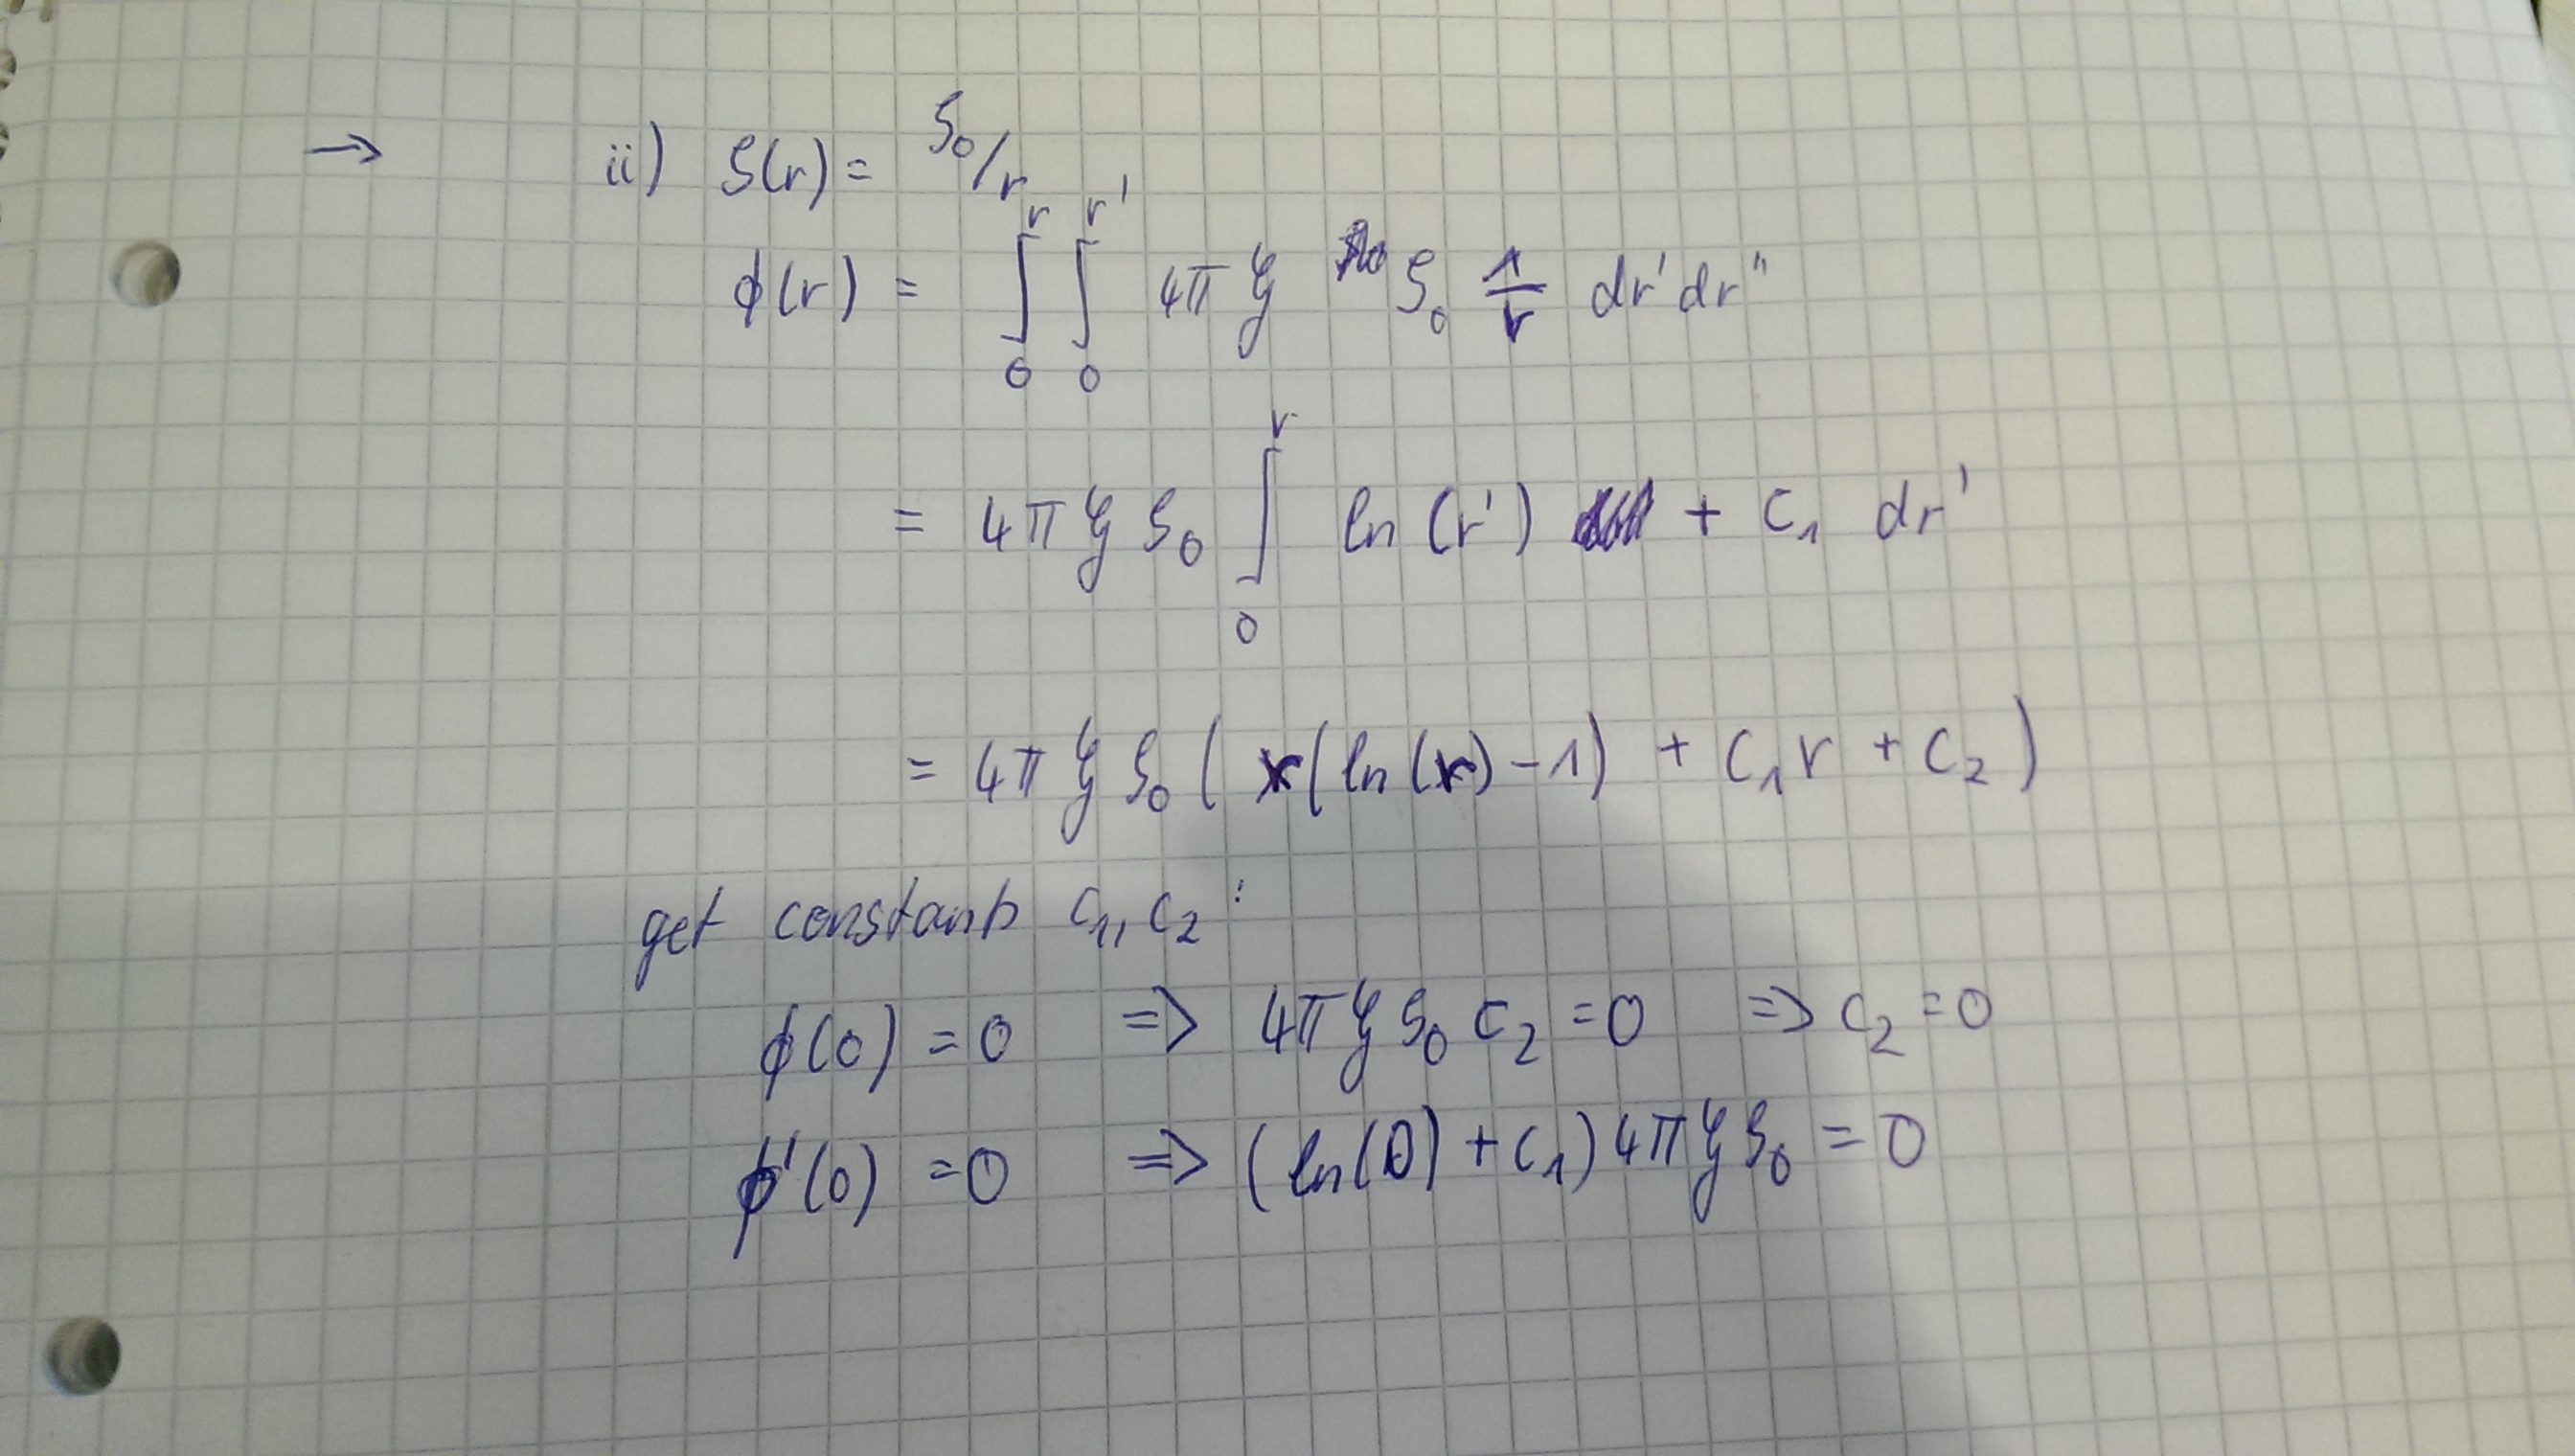 → ii) ρ(r) = ρ₀/r
ϕ(r) = ∫₀^r ∫₀^r' 4π G ρ₀ 1/r dr' dr''
= 4π G ρ₀ ∫₀^r ln(r') + C₁ dr'
= 4π G ρ₀ ( r(ln(r) - 1) + C₁r + C₂ )
get constants C₁, C₂ :
ϕ(0) = 0 ⇒ 4π G ρ₀ C₂ = 0 ⇒ C₂ = 0
ϕ'(0) = 0 ⇒ (ln(0) + C₁) 4π G ρ₀ = 0